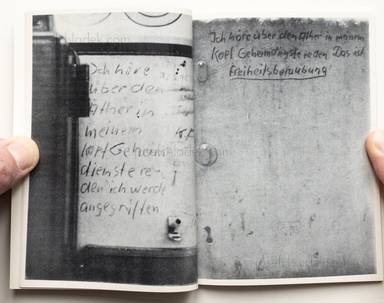 Ich höre
über den
Äther in
meinem
Kopf Geheim
dienste re-
den ich werde
angegriffen
Ich höre über den Äther in meinem
Kopf Geheimdienste reden Das ist
Freiheitsberaubung